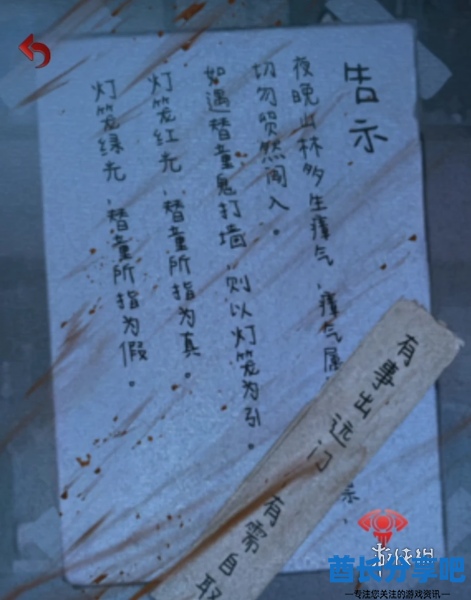 告示
夜晚山林多生瘴气,瘴气属
切勿贸然闯入。
如遇替童鬼打墙,则以灯笼为引。
灯笼红光,替童所指为真。
灯笼绿光,替童所指为假。
有事出远门
有需自取
游侠网
酋长分享吧
—专注您关注的游戏资讯—